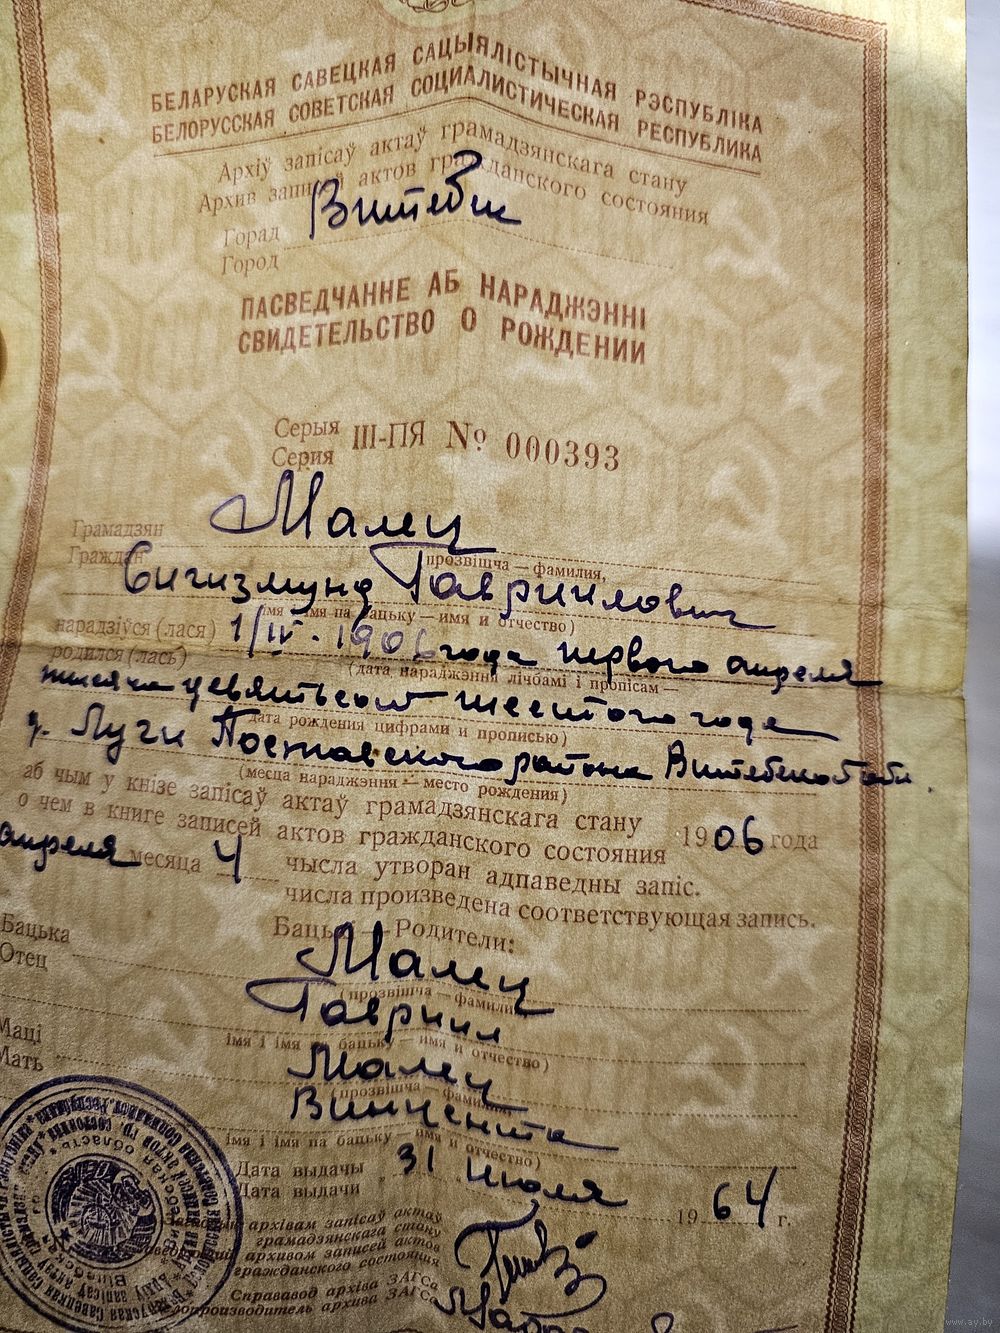 БЕЛАРУСКАЯ САВЕЦКАЯ САЦЫЯЛІСТЫЧНАЯ РЭСПУБЛІКА
БЕЛОРУССКАЯ СОВЕТСКАЯ СОЦИАЛИСТИЧЕСКАЯ РЕСПУБЛИКА
Архіў запісаў актаў грамадзянскага стану
Архив записей актов гражданского состояния
Горад Витебск
Город
ПАСВЕДЧАННЕ АБ НАРАДЖЭННІ
СВИДЕТЕЛЬСТВО О РОЖДЕНИИ
Серыя
Серия III-ПЯ № 000393
Грамадзян Малец
Граждан
прозвішча — фамилия,
Сигизмунд Гавриилович
імя і імя па бацьку — имя и отчество)
нарадзіўся (лася) 1/IV-1906 года первого апреля
родился (лась)
(дата нараджэння лічбамі і пропісам —
тысяча девятьсот шестого года
дата рождения цифрами и прописью)
д. Луги Поставского района Витебской обл.
(месца нараджэння — место рождения)
аб чым у кнізе запісаў актаў грамадзянскага стану
о чем в книге записей актов гражданского состояния 1906 года
апреля месяца 4 чысла утворан адпаведны запіс.
числа произведена соответствующая запись.
Бацькі — Родители:
Бацька
Отец Малец
(прозвішча — фамилия
Гавриил
імя і імя па бацьку — имя и отчество)
Маці
Мать Малец
(прозвішча — фамилия
Винцента
імя і імя па бацьку — имя и отчество)
Дата выдачы 31 июля 1964 г.
Дата выдачи
Загадчык архівам запісаў актаў
грамадзянскага стану
Заведующий архивом записей актов
гражданского состояния
Справавод архіва ЗАГСа
Делопроизводитель архива ЗАГСа
www.ay.by